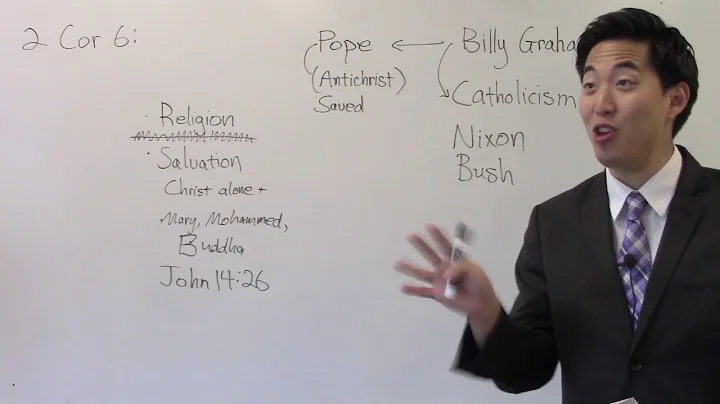 2 Cor 6:
Pope ← Billy Graha
(Antichrist)
Saved
Catholicism
Nixon
Bush
· Religion
· Salvation
Christ alone +
Mary, Mohammed,
Buddha
John 14:26